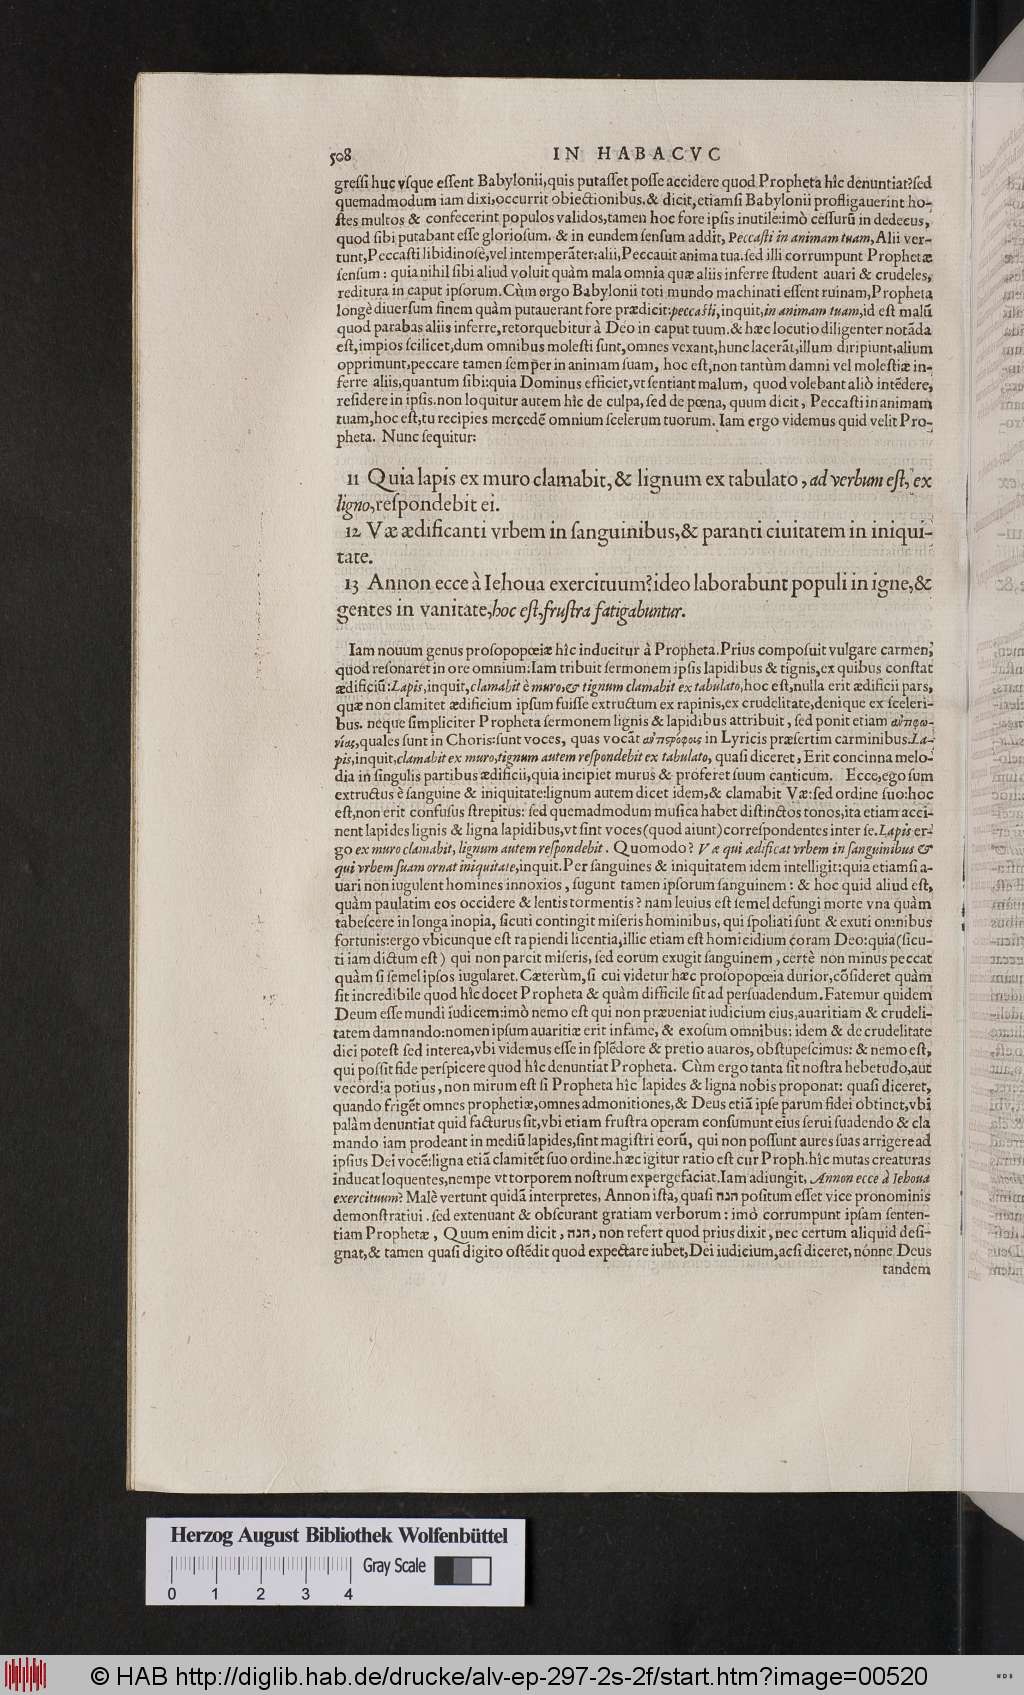 508 IN HABACVC
greſſi huc vſque eſſent Babylonii,quis putaſſet poſſe accidere quod Propheta hîc denuntiat?ſed
quemadmodum iam dixi,occurrit obiectionibus.& dicit,etiamſi Babylonii profligauerint ho-
ſtes multos & confecerint populos validos,tamen hoc fore ipſis inutile:imò ceſſurũ in dedecus,
quod ſibi putabant eſſe glorioſum. & in eundem ſenſum addit, Peccaſti in animam tuam,Alii ver-
tunt,Peccaſti libidinoſè,vel intemperãter:alii,Peccauit anima tua.ſed illi corrumpunt Prophetæ
ſenſum : quia nihil ſibi aliud voluit quàm mala omnia quæ aliis inferre ſtudent auari & crudeles,
reditura in caput ipſorum.Cùm ergo Babylonii toti mundo machinati eſſent ruinam,Propheta
longè diuerſum finem quàm putauerant fore prædicit:peccaſti,inquit,in animam tuam,id eſt malũ
quod parabas aliis inferre,retorquebitur à Deo in caput tuum.& hæc locutio diligenter notãda
eſt,impios ſcilicet,dum omnibus moleſti ſunt,omnes vexant,hunc lacerãt,illum diripiunt,alium
opprimunt,peccare tamen ſemper in animam ſuam, hoc eſt,non tantùm damni vel moleſtiæ in-
ferre aliis,quantum ſibi:quia Dominus efficiet,vt ſentiant malum, quod volebant aliò intẽdere,
reſidere in ipſis.non loquitur autem hîc de culpa, ſed de pœna, quum dicit, Peccaſti in animam
tuam,hoc eſt,tu recipies mercedẽ omnium ſcelerum tuorum. Iam ergo videmus quid velit Pro-
pheta. Nunc ſequitur:
11 Quia lapis ex muro clamabit,& lignum ex tabulato , ad verbum eſt, ex
ligno,reſpondebit ei.
12 Væ ædificanti vrbem in ſanguinibus,& paranti ciuitatem in iniqui-
tate.
13 Annon ecce à Iehoua exercituum?ideo laborabunt populi in igne,&
gentes in vanitate,hoc eſt,fruſtra fatigabuntur.
Iam nouum genus proſopopœiæ hîc inducitur à Propheta.Prius compoſuit vulgare carmen,
quod reſonaret in ore omnium:Iam tribuit ſermonem ipſis lapidibus & tignis,ex quibus conſtat
ædificiũ:Lapis,inquit,clamabit è muro,& tignum clamabit ex tabulato,hoc eſt,nulla erit ædificii pars,
quæ non clamitet ædificium ipſum fuiſſe extructum ex rapinis,ex crudelitate,denique ex ſceleri-
bus. neque ſimpliciter Propheta ſermonem lignis & lapidibus attribuit , ſed ponit etiam ἀντιφω-
νίας,quales ſunt in Choris:ſunt voces, quas vocãt ἀντιστρόφους in Lyricis præſertim carminibus.La-
pis,inquit,clamabit ex muro,tignum autem reſpondebit ex tabulato, quaſi diceret, Erit concinna melo-
dia in ſingulis partibus ædificii,quia incipiet murus & proferet ſuum canticum. Ecce,ego ſum
extructus è ſanguine & iniquitate:lignum autem dicet idem,& clamabit Væ:ſed ordine ſuo:hoc
eſt,non erit confuſus ſtrepitus: ſed quemadmodum muſica habet diſtinctos tonos,ita etiam acci-
nent lapides lignis & ligna lapidibus,vt ſint voces(quod aiunt)correſpondentes inter ſe.Lapis er-
go ex muro clamabit, lignum autem reſpondebit. Quomodo? Væ qui ædificat vrbem in ſanguinibus &
qui vrbem ſuam ornat iniquitate,inquit.Per ſanguines & iniquitatem idem intelligit:quia etiamſi a-
uari non iugulent homines innoxios , ſugunt tamen ipſorum ſanguinem : & hoc quid aliud eſt,
quàm paulatim eos occidere & lentis tormentis ? nam leuius eſt ſemel defungi morte vna quàm
tabeſcere in longa inopia, ſicuti contingit miſeris hominibus, qui ſpoliati ſunt & exuti omnibus
fortunis:ergo vbicunque eſt rapiendi licentia,illic etiam eſt homicidium coram Deo:quia(ſicu-
ti iam dictum eſt) qui non parcit miſeris, ſed eorum exugit ſanguinem , certè non minus peccat
quàm ſi ſemel ipſos iugularet. Cæterùm,ſi cui videtur hæc proſopopœia durior,cõſideret quàm
ſit incredibile quod hîc docet Propheta & quàm difficile ſit ad perſuadendum.Fatemur quidem
Deum eſſe mundi iudicem:imò nemo eſt qui non præueniat iudicium eius,auaritiam & crudeli-
tatem damnando:nomen ipſum auaritiæ erit infame, & exoſum omnibus: idem & de crudelitate
dici poteſt ſed interea,vbi videmus eſſe in ſplẽdore & pretio auaros, obſtupeſcimus: & nemo eſt,
qui poſſit fide perſpicere quod hîc denuntiat Propheta. Cùm ergo tanta ſit noſtra hebetudo,aut
vecordia potius, non mirum eſt ſi Propheta hîc lapides & ligna nobis proponat: quaſi diceret,
quando frigẽt omnes prophetiæ,omnes admonitiones,& Deus etiã ipſe parum fidei obtinet,vbi
palàm denuntiat quid facturus ſit,vbi etiam fruſtra operam conſumunt eius ſerui ſuadendo & cla
mando iam prodeant in mediũ lapides,ſint magiſtri eorũ, qui non poſſunt aures ſuas arrigere ad
ipſius Dei vocẽ:ligna etiã clamitẽt ſuo ordine.hæc igitur ratio eſt cur Proph.hîc mutas creaturas
inducat loquentes,nempe vt torporem noſtrum expergefaciat.Iam adiungit, Annon ecce à Iehoua
exercituum? Malè vertunt quidã interpretes, Annon iſta, quaſi הנה poſitum eſſet vice pronominis
demonſtratiui . ſed extenuant & obſcurant gratiam verborum : imò corrumpunt ipſam ſenten-
tiam Prophetæ , Quum enim dicit , הנה, non refert quod prius dixit, nec certum aliquid deſi-
gnat,& tamen quaſi digito oſtẽdit quod expectare iubet,Dei iudicium,acſi diceret, nónne Deus
tandem
Herzog August Bibliothek Wolfenbüttel
Gray Scale
0 1 2 3 4
© HAB http://diglib.hab.de/drucke/alv-ep-297-2s-2f/start.htm?image=00520
WDB